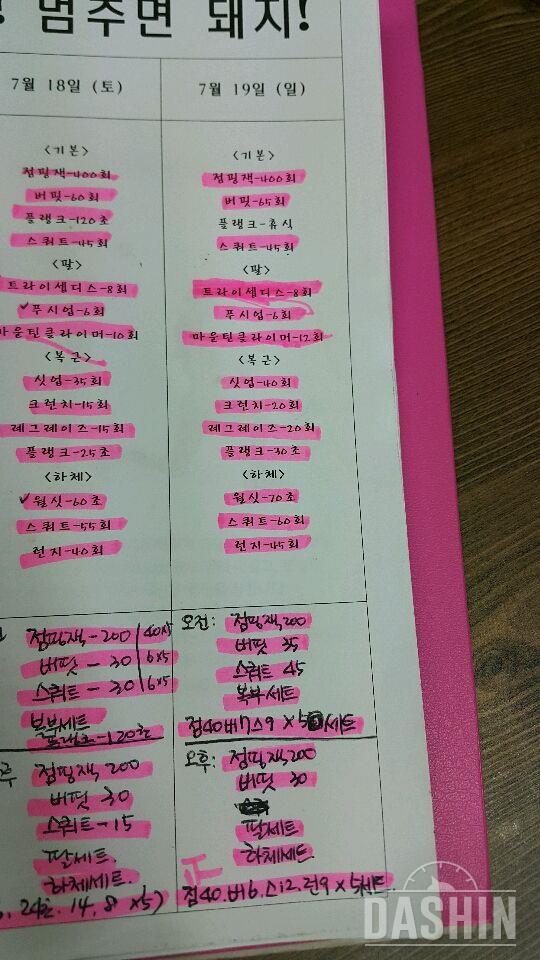 멈추면 돼지!
7월 18일 (토)
<기본>
점핑잭-400회
버핏-60회
플랭크-120초
스쿼트-45회
<팔>
트라이셉디스-8회
✓푸시업-6회
마운틴클라이머-10회
<복근>
싯업-35회
크런치-15회
레그레이즈-15회
플랭크-25초
<하체>
✓월싯-60초
스쿼트-55회
런지-40회
점핑잭-200 40x5
버핏-30 6x5
스쿼트-30 6x5
복부세트
플랭크-120초
점핑잭 200
버핏 30
스쿼트-15
팔세트.
하체세트.
24초. 14. 8 x5)
7월 19일 (일)
<기본>
점핑잭-400회
버핏-65회
플랭크-휴식
스쿼트-45회
<팔>
트라이셉디스-8회
푸시업-6회
마운틴클라이머-12회
<복근>
싯업-40회
크런치-20회
레그레이즈-20회
플랭크-30초
<하체>
월싯-70초
스쿼트-60회
런지-45회
오전: 점핑잭 200
버핏 35
스쿼트 45
복부세트
점40버7스9 x5세트
오후: 점핑잭 200
버핏 30
팔세트
하체세트
正
점40.버6.스12.런9 x5세트.
DASHIN